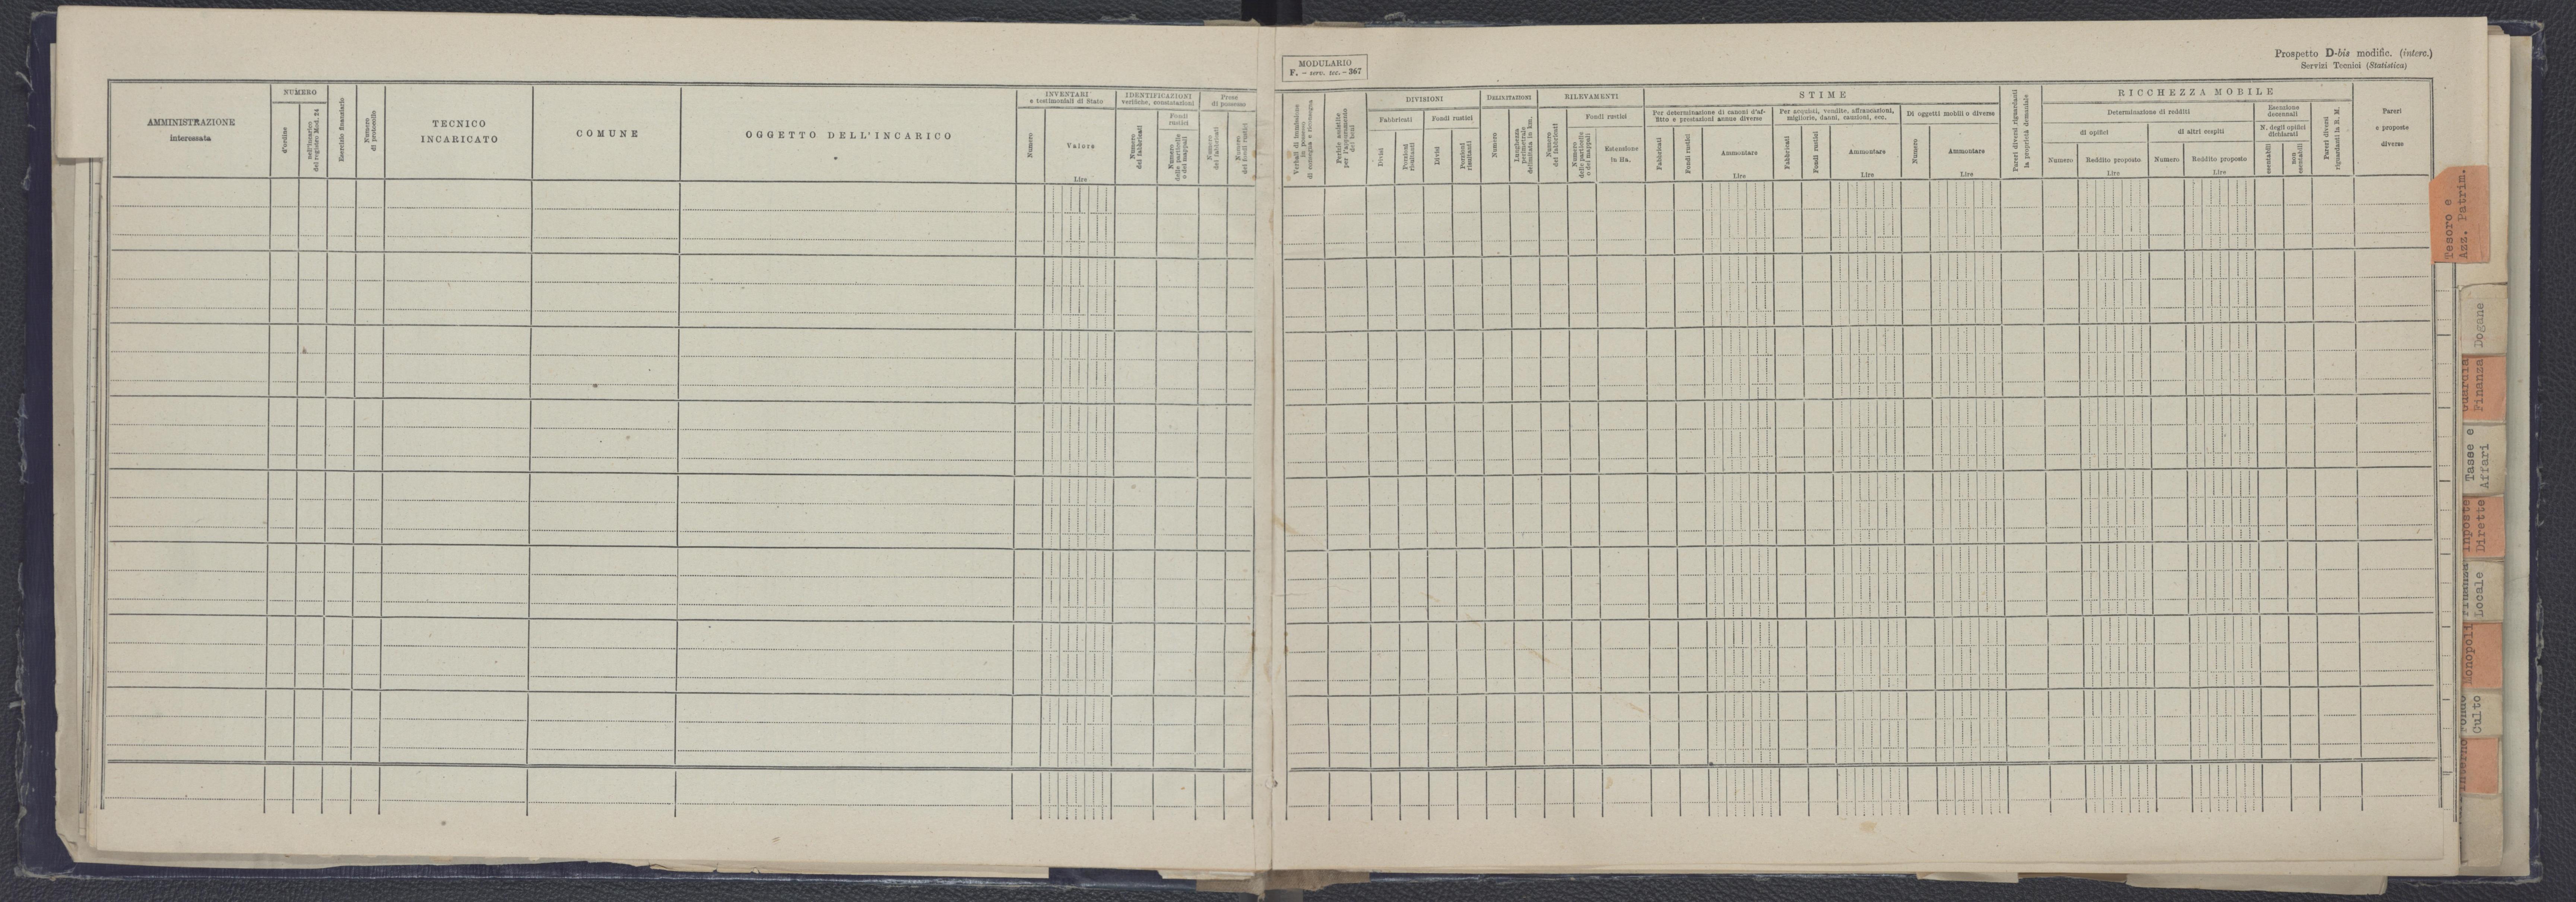 MODULARIO
F. - serv. tec. - 367
Prospetto D-bis modific. (interc.)
Servizi Tecnici (Statistica)
AMMINISTRAZIONE
interessata
NUMERO
d'ordine
nell'incarico
del registro Mod. 24
Esercizio finanziario
Numero
di protocollo
TECNICO
INCARICATO
COMUNE
OGGETTO DELL'INCARICO
INVENTARI
e testimoniali di Stato
Numero
Valore
Lire
IDENTIFICAZIONI
verifiche, constatazioni
Numero
dei fabbricati
Fondi
rustici
Numero
delle particelle
o dei mappali
Prese
di possesso
Numero
dei fabbricati
Numero
dei fondi rustici
Verbali di immissione
in possesso
di consegna e riconsegna
Perizie assistite
per l'apponimento
dei beni
DIVISIONI
Fabbricati
Divisi
Porzioni
risultanti
Fondi rustici
Divisi
Porzioni
risultanti
DELIMITAZIONI
Numero
Lunghezza
perimetrale
delimitata in km.
RILEVAMENTI
Numero
dei fabbricati
Fondi rustici
Numero
delle particelle
o dei mappali
Estensione
in Ha.
STIME
Per determinazione di canoni d'af-
fitto e prestazioni annue diverse
Fabbricati
Fondi rustici
Ammontare
Lire
Per acquisti, vendite, affrancazioni,
migliorie, danni, cauzioni, ecc.
Fabbricati
Fondi rustici
Ammontare
Lire
Di oggetti mobili o diverse
Numero
Ammontare
Lire
Pareri diversi riguardanti
la proprietà demaniale
RICCHEZZA MOBILE
Determinazione di redditi
di opifici
Numero
Reddito proposto
Lire
di altri cespiti
Numero
Reddito proposto
Lire
Esenzione
decennali
N. degli opifici
dichiarati
esentabili
non
esentabili
Pareri diversi
riguardanti la R. M.
Pareri
e proposte
diverse
Tesoro e
Azz. Patrim.
Dogane
Guardia
Finanza
Tasse e
Affari
Inposte
Dirette
Finanza
Locale
Monopoli
Fondo
Culto
Interno